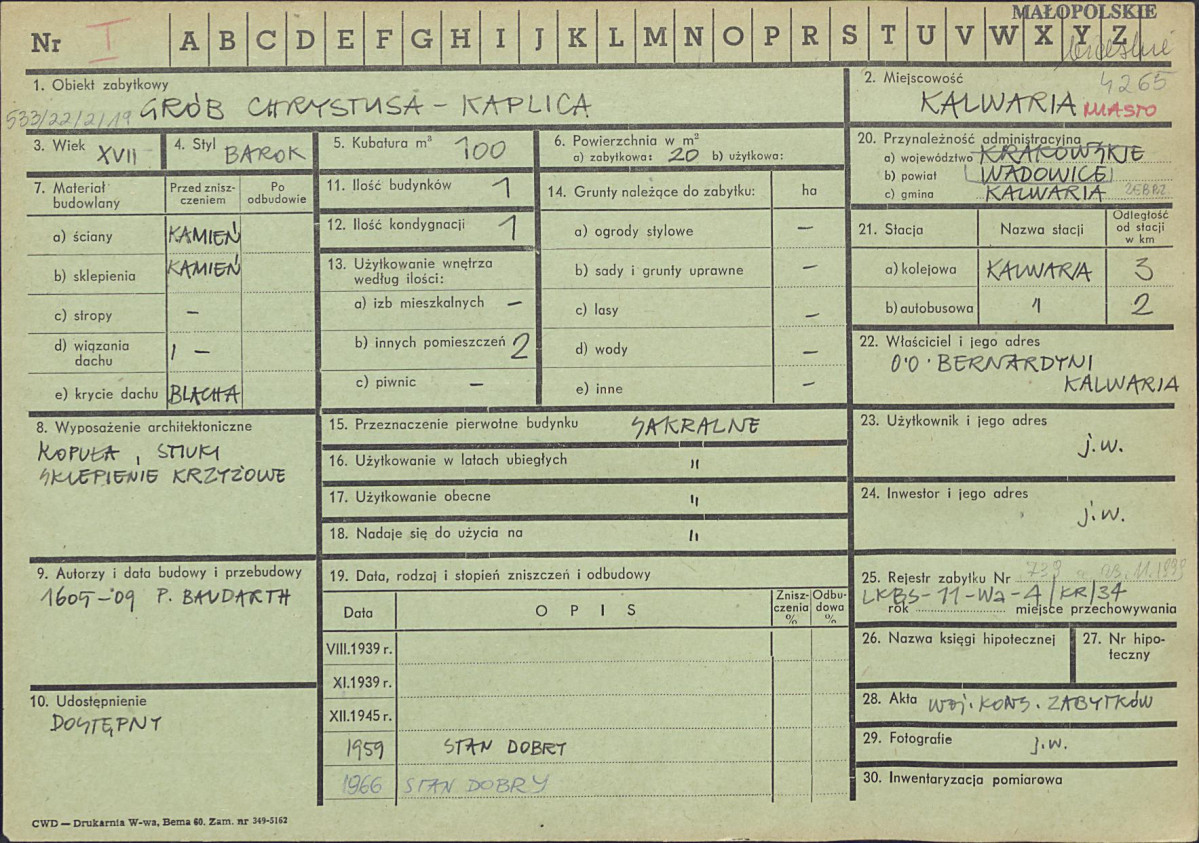 MAŁOPOLSKIE
Nr I A B C D E F G H I J K L M N O P R S T U V W X Y Z
1. Obiekt zabytkowy
GRÓB CHRYSTUSA - KAPLICA
533/22/2/19
2. Miejscowość
4265
KALWARIA MIASTO
3. Wiek XVII
4. Styl BAROK
5. Kubatura m³ 100
6. Powierzchnia w m²
a) zabytkowa: 20 b) użytkowa:
20. Przynależność administracyjna
a) województwo KRAKOWSKIE
b) powiat WADOWICE
c) gmina KALWARIA ZEBRZ.
7. Materiał budowlany
Przed zniszczeniem
Po odbudowie
a) ściany KAMIEŃ
b) sklepienia KAMIEŃ
c) stropy –
d) wiązania dachu –
e) krycie dachu BLACHA
11. Ilość budynków 1
12. Ilość kondygnacji 1
13. Użytkowanie wnętrza
według ilości:
a) izb mieszkalnych –
b) innych pomieszczeń 2
c) piwnic –
14. Grunty należące do zabytku: ha
a) ogrody stylowe –
b) sady i grunty uprawne –
c) lasy –
d) wody –
e) inne –
21. Stacja Nazwa stacji Odległość od stacji w km
a) kolejowa KALWARIA 3
b) autobusowa 1 2
22. Właściciel i jego adres
O'O. BERNARDYNI
KALWARIA
8. Wyposażenie architektoniczne
KOPUŁA, STIUKI
SKLEPIENIE KRZYŻOWE
15. Przeznaczenie pierwotne budynku SAKRALNE
16. Użytkowanie w latach ubiegłych "
17. Użytkowanie obecne "
18. Nadaje się do użycia na "
23. Użytkownik i jego adres
j.w.
24. Inwestor i jego adres
j.w.
9. Autorzy i data budowy i przebudowy
1605-09 P. BAUDARTH
19. Data, rodzaj i stopień zniszczeń i odbudowy
Data OPIS Zniszczenia % Odbudowa %
VIII.1939 r.
XI.1939 r.
XII.1945 r.
1959 STAN DOBRY
1966 STAN DOBRY
25. Rejestr zabytku Nr
LKBS-11-Wa-4/KR/34
rok miejsce przechowywania
26. Nazwa księgi hipotecznej
27. Nr hipoteczny
10. Udostępnienie
DOSTĘPNY
28. Akta WOJ. KONS. ZABYTKÓW
29. Fotografie j.w.
30. Inwentaryzacja pomiarowa
CWD — Drukarnia W-wa, Bema 60. Zam. nr 349-5162